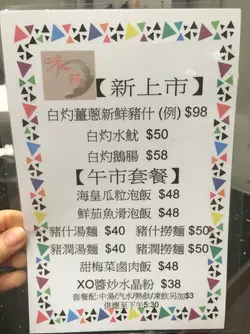 味
【新上市】
白灼薑蔥新鮮豬什(例)$98
白灼水魷 $50
白灼鵝腸 $58
【午市套餐】
海皇瓜粒泡飯 $48
鮮茄魚滑泡飯 $48
豬什湯麵 $40 豬什撈麵 $50
豬潤湯麵 $40 豬潤撈麵 $50
甜梅菜鹵肉飯 $48
XO醬炒水晶粉 $38
套餐配:中湯/汽水/熱飲/凍飲另加$3
供應至下午5:30